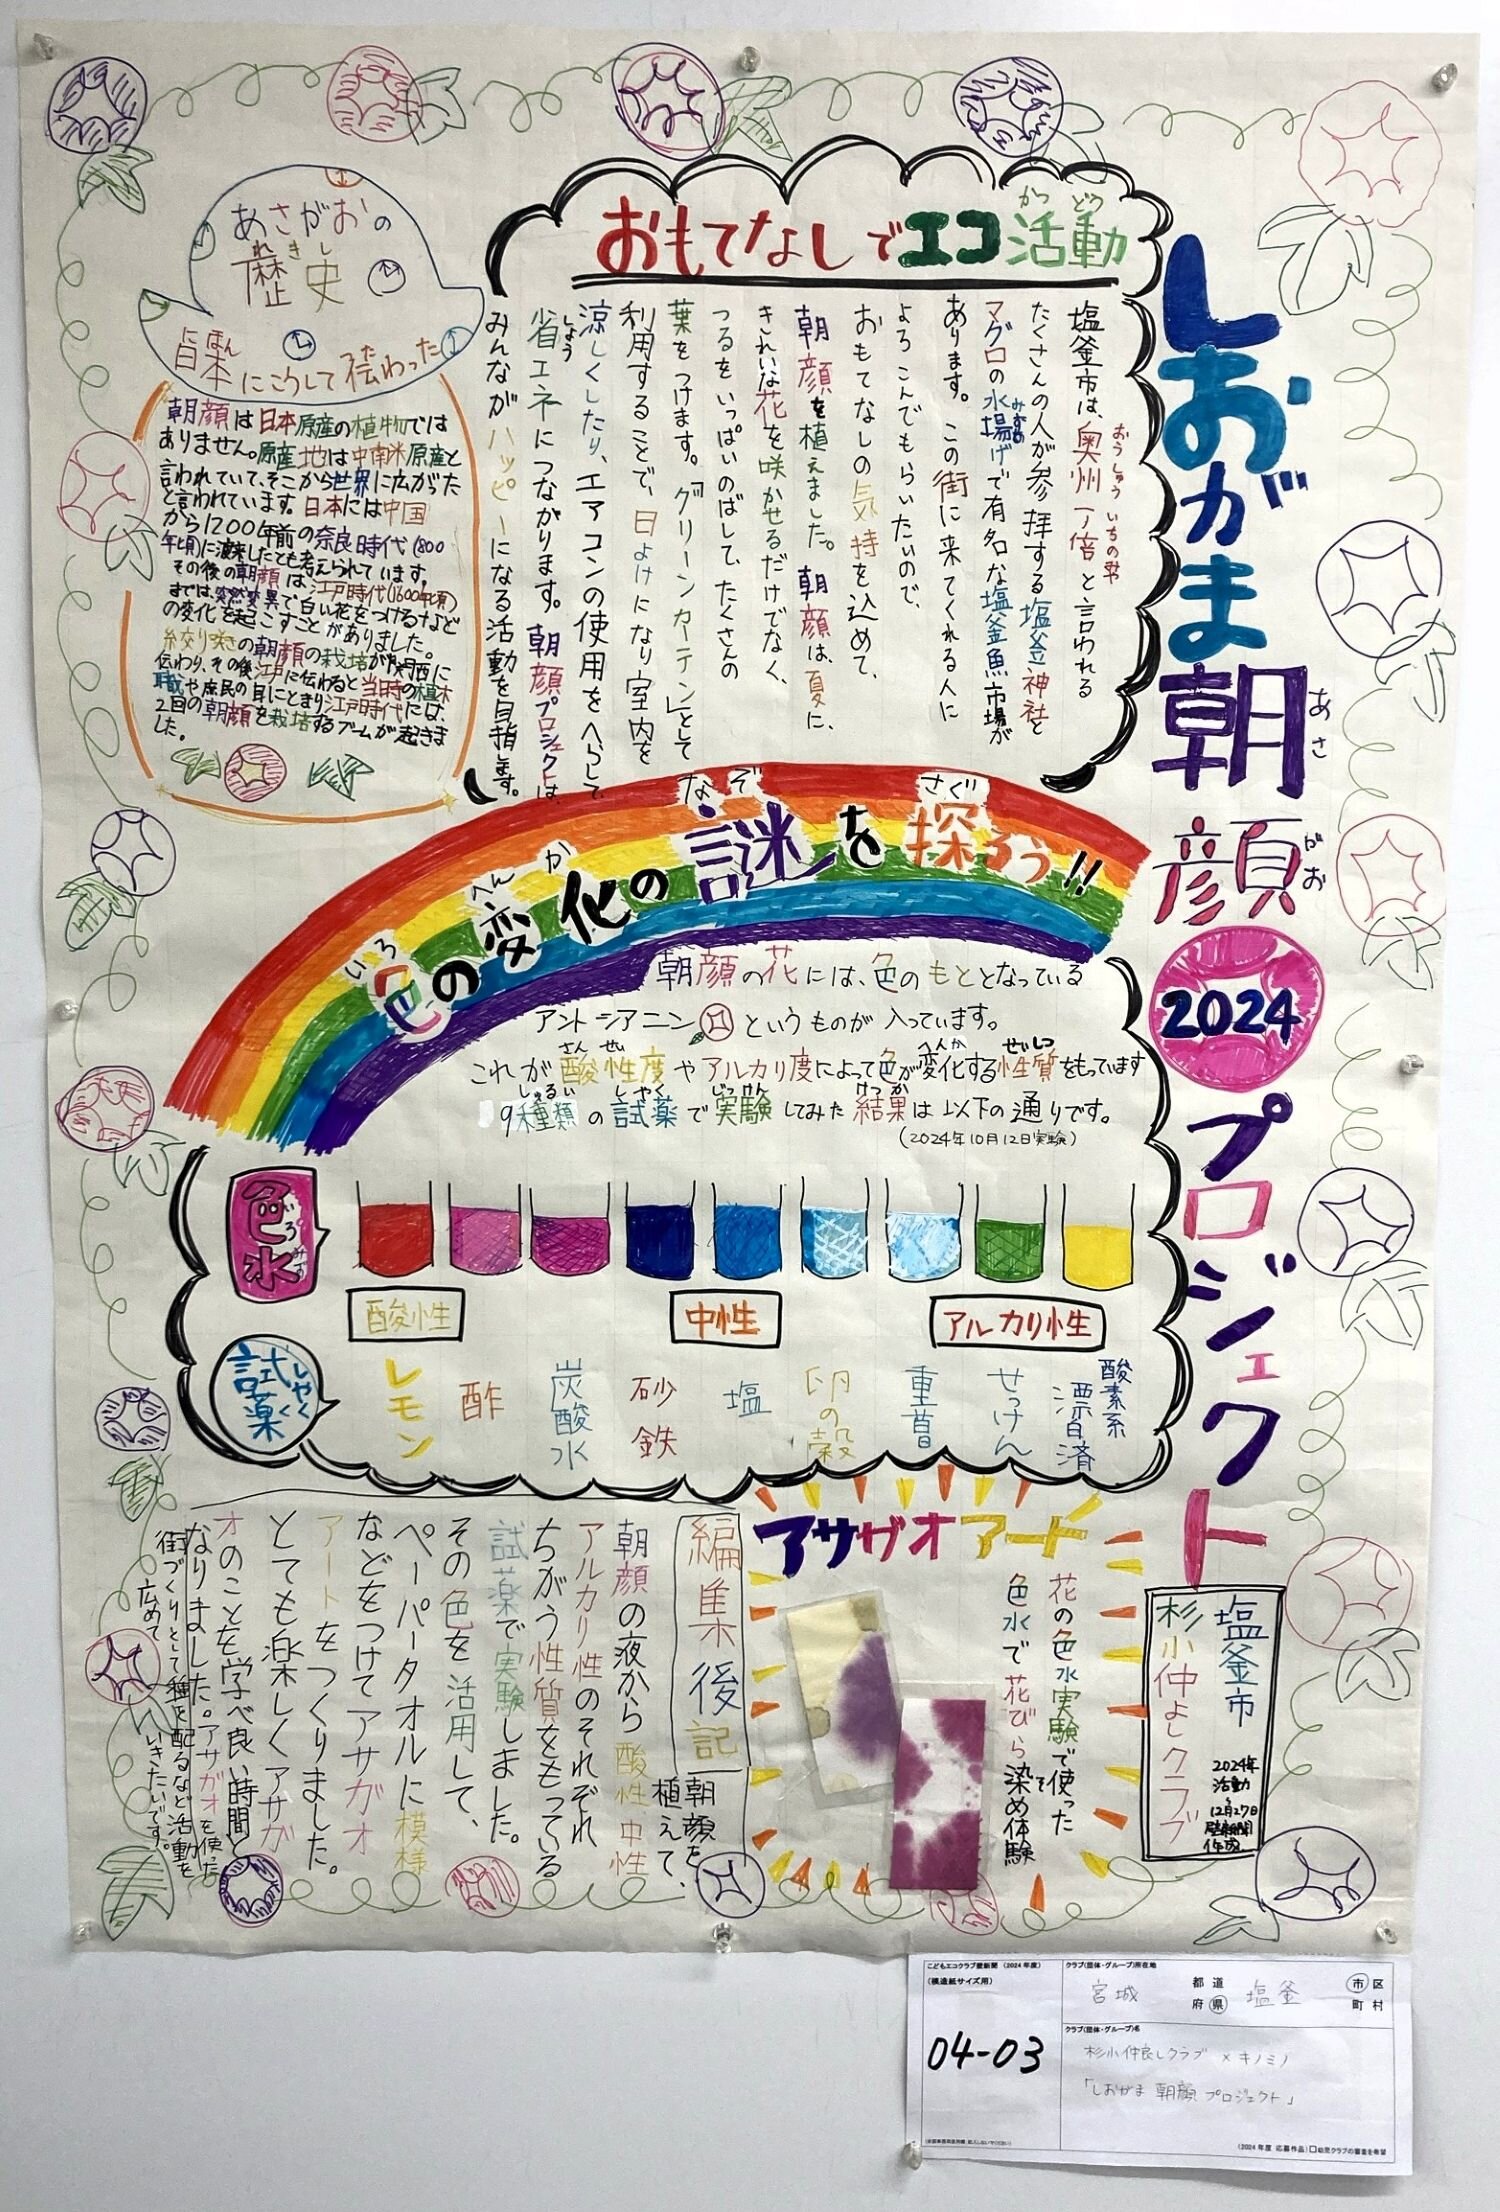 しおがま朝顔2024プロジェクト
あさ
がお
おもてなしでエコ活動
かつ どう
塩釜市は、奥州一倍と言われる
おうしゅう いちの
たくさんの人が参拝する塩釜神社と
マグロの水場げで有名な塩釜魚市場が
みずあ
あります。この街に来てくれる人に
よろこんでもらいたいので、
おもてなしの気持を込めて、
朝顔を植えました。朝顔は、夏に、
きれいな花を咲かせるだけでなく、
つるをいっぱいのばして、たくさんの
葉をつけます。「グリーンカーテン」として
利用することで、日よけになり室内を
涼しくしたり、エアコンの使用をへらして
省エネにつながります。朝顔プロジェクトは、
しょう
みんながハッピーになる活動を目指します。
あさがおの
れきし
歴史
にほん
日本にこうして伝わった
つた
朝顔は日本原産の植物では
ありません。原産地は中南米原産と
言われていて、そこから世界に広がった
と言われています。日本には中国
から1200年前の奈良時代(800
年頃)に渡来したとも考えられています。
その後の朝顔は、江戸時代(1600年頃)
までは、突然変異で白い花をつけるなど
の変化を起こすことがありました。
絞り咲きの朝顔の栽培が関西に
伝わり、その後江戸に伝わると当時の植木
職や庶民の目にとまり江戸時代には、
2回の朝顔を栽培するブームが起きま
した。
色の変化の謎を探ろう!!
いろ へん か なぞ さぐ
朝顔の花には、色のもととなっている
アントシアニンというものが入っています。
これが酸性度やアルカリ度によって色が変化する性質をもっています
さんせい へんか せいしつ
9種類の試薬で実験してみた結果は以下の通りです。
しゅるい しやく じっけん けっか
(2024年10月12日実験)
色水
いろみず
酸性
中性
アルカリ性
試薬
しやく
レモン
酢
炭酸水
砂鉄
塩
卵の殻
重曹
せっけん
酸素系
漂白済
アサガオアート
花の色水実験で使った
色水で花びら染め体験
そ
編集後記
朝顔を
植えて、
朝顔の液から酸性中性
アルカリ性のそれぞれ
ちがう性質をもっている
試薬で実験しました。
その色を活用して、
ペーパータオルに模様
などをつけてアサガオ
アートをつくりました。
とても楽しくアサガ
オのことを学べ良い時間と
なりました。アサガオを使った
街づくりとして種を配るなど活動を
広めていきたいです。
塩釜市
杉小仲よしクラブ
2024年
活動
12月27日
壁新聞
作成
こどもエコクラブ壁新聞(2024年度)
(模造紙サイズ用)
04-03
クラブ(団体・グループ)所在地
宮城 都道府県 塩釜 市区町村
クラブ(団体・グループ)名
杉小仲良しクラブ × キノミノ
「しおがま 朝顔プロジェクト」
(2024年度 応募作品)□幼児クラブの審査を希望